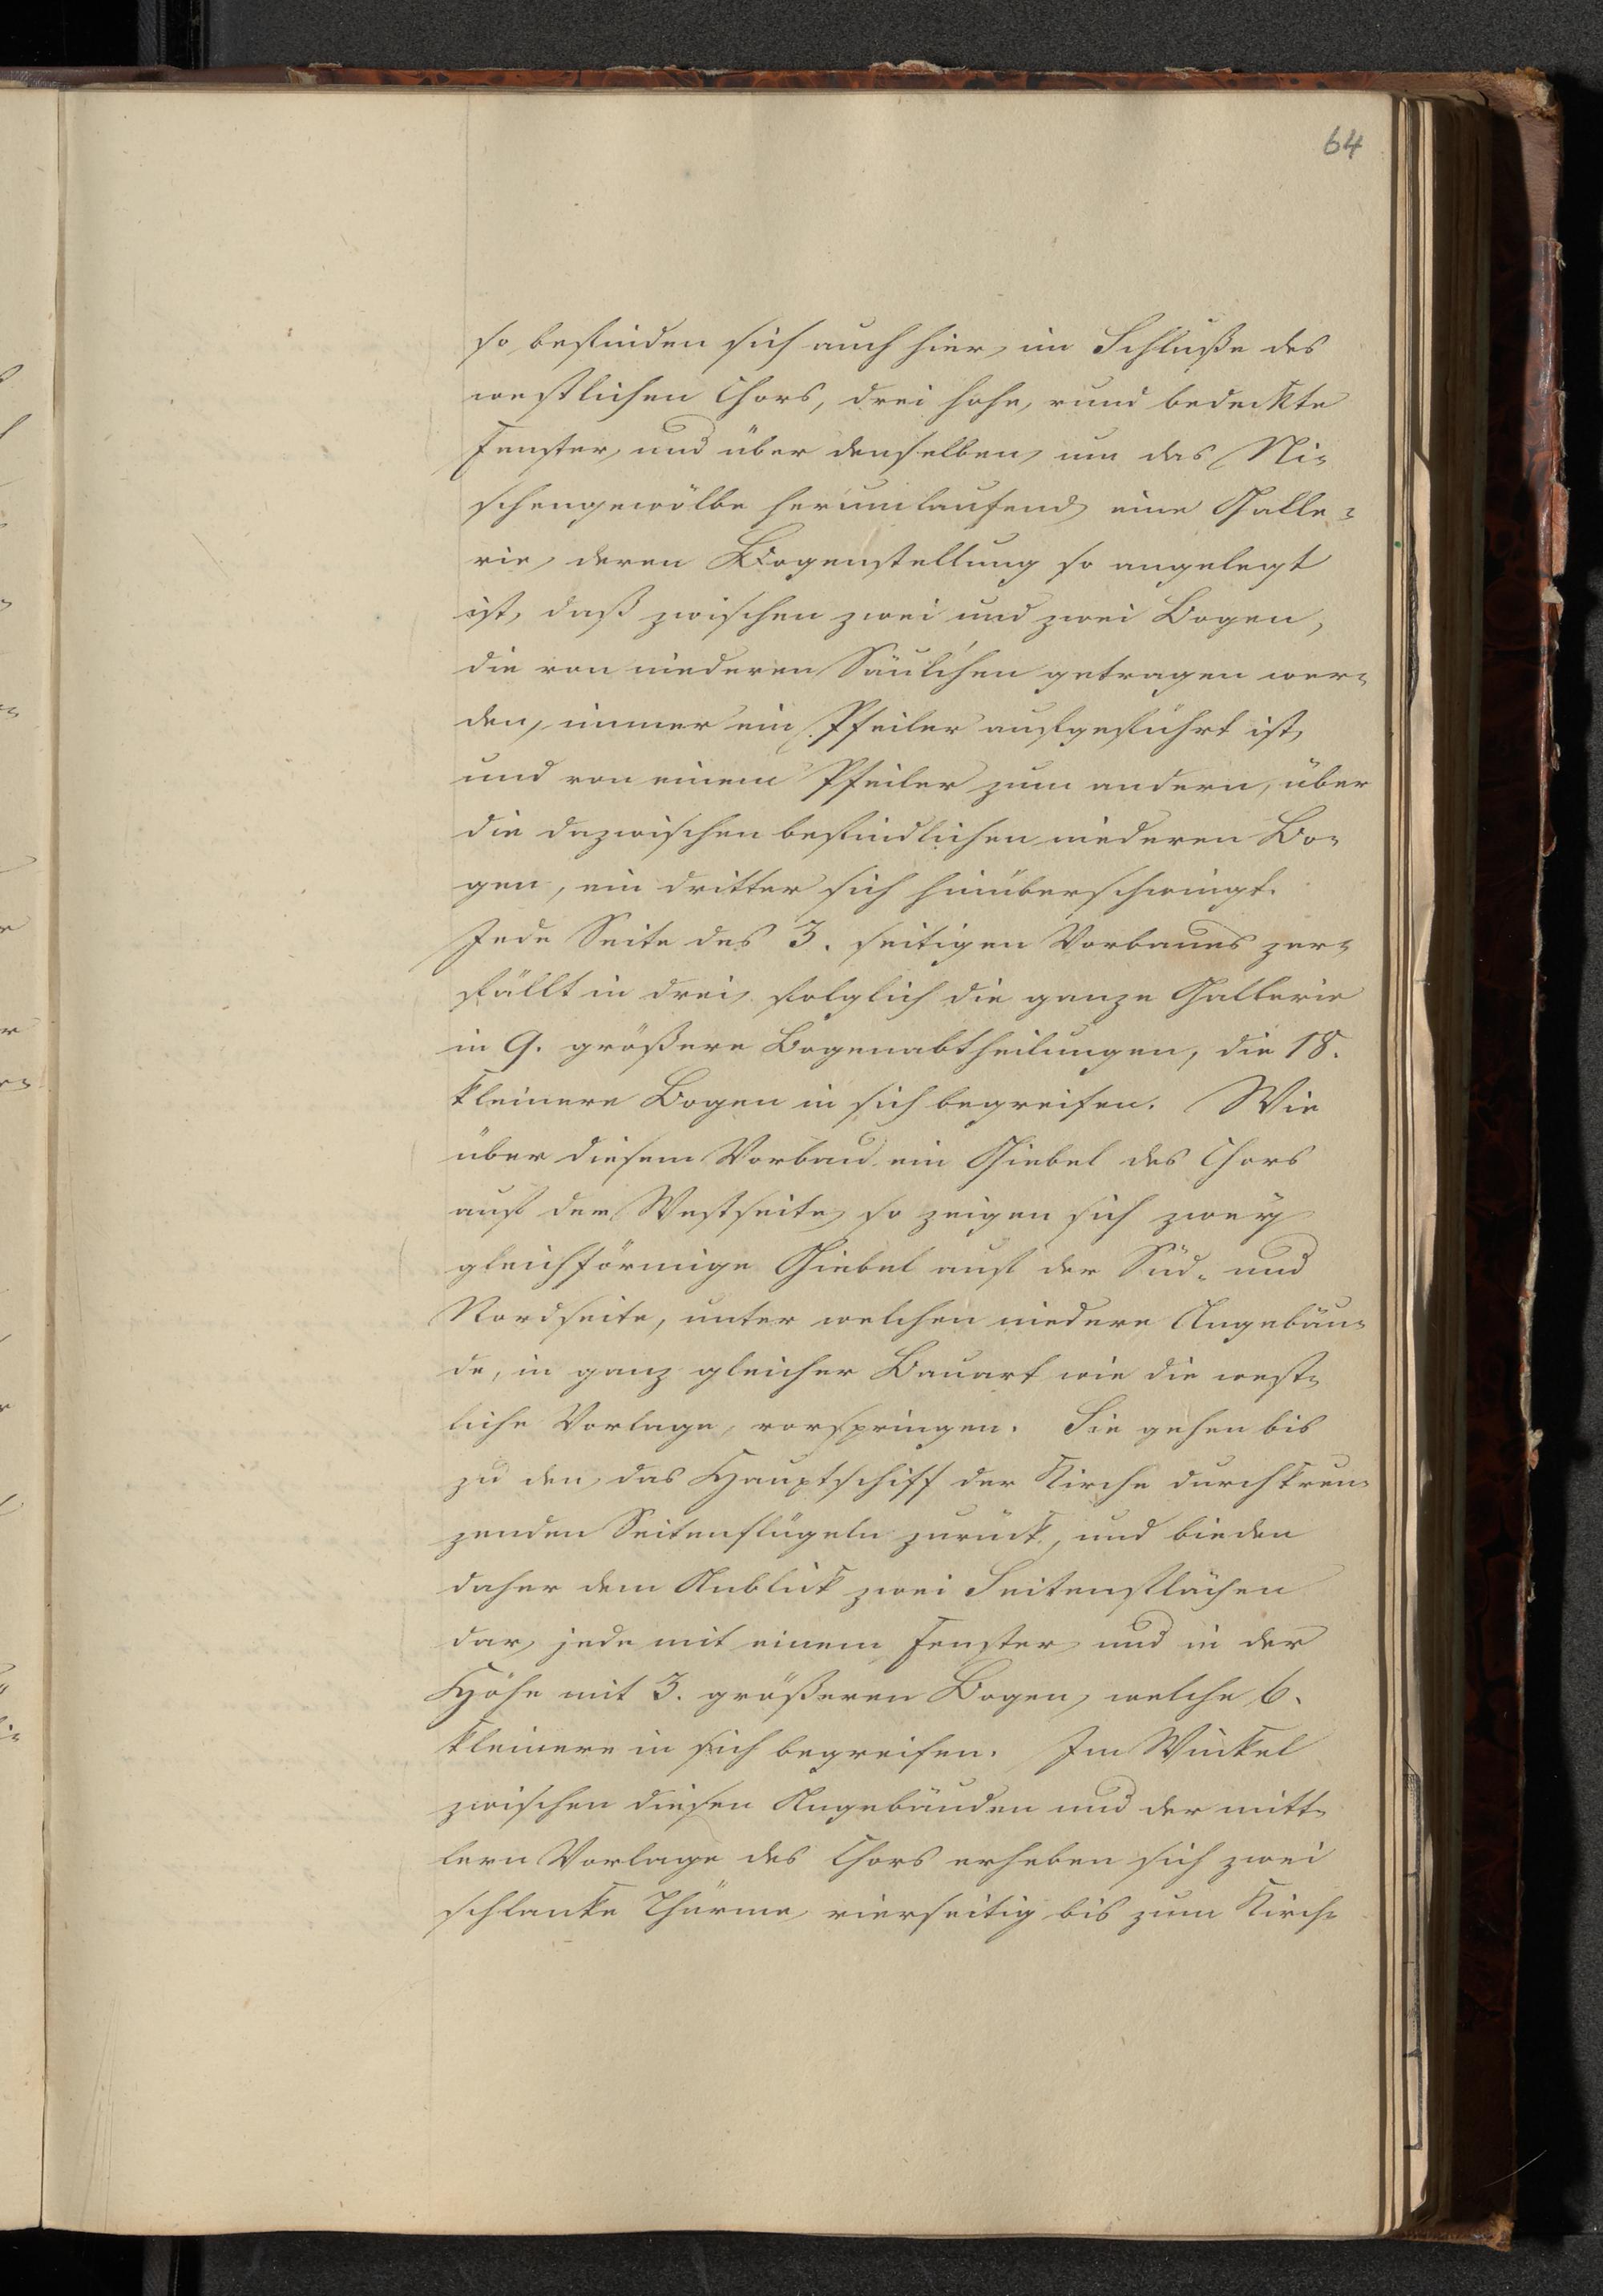 64
so befinden sich auch hier, im Schluße des
westlichen Chors, drei hohe, rund bedeckte
Fenster, und über denselben, um das Ni-
schengewölbe herumlaufend, eine Galle-
rie, deren Bogenstellung so angelegt
ist, daß zwischen zwei und zwei Bogen,
die von niederen Säulchen getragen wer-
den, immer ein Pfeiler aufgeführt ist,
und von einem Pfeiler zum andern, über
die dazwischen befindlichen niederen Bo-
gen, ein dritter sich hinüberschwingt.
Jede Seite des 3. seitigen Vorbaues zer-
fällt in drei, folglich die ganze Gallerie
in 9. größere Bogenabtheilungen, die 18.
kleinere Bogen in sich begreifen. Wie
über diesem Vorbau ein Giebel des Chors
auf der Westseite, so zeigen sich zwey
gleichförmige Giebel auf der Süd- und
Nordseite, unter welchen niedere Angebäu-
de, in ganz gleicher Bauart wie die west-
liche Vorlage, vorspringen. Sie gehen bis
zu den, das Hauptschiff der Kirche durchkreu-
zenden Seitenflügeln zurück, und bieden
daher dem Anblick zwei Seitenflächen
dar, jede mit einem Fenster, und in der
Höhe mit 3. größeren Bogen, welche 6.
kleinere in sich begreifen. Im Winkel
zwischen diesen Angebäuden und der mitt-
lern Vorlage des Chors erheben sich zwei
schlanke Thürme, vierseitig bis zum Kirch-